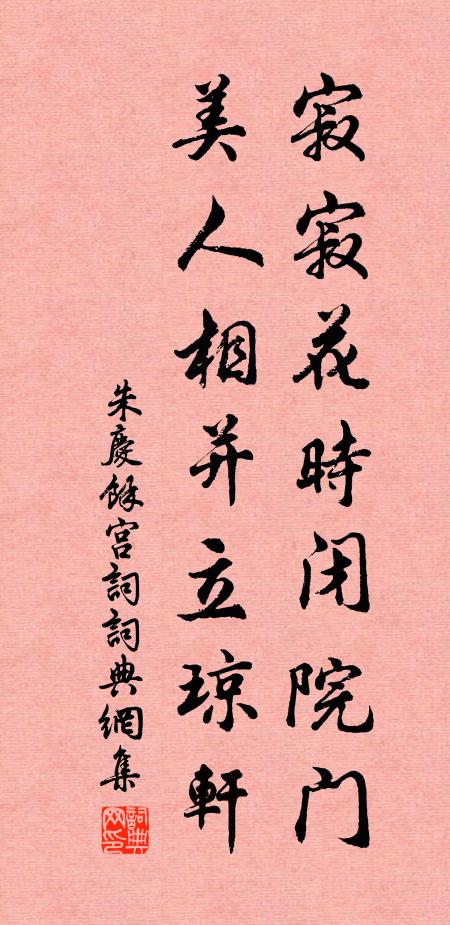 寂寂花時闭院門
美人相并立琼軒
朱慶餘宫詞詞典網集
詞典网印